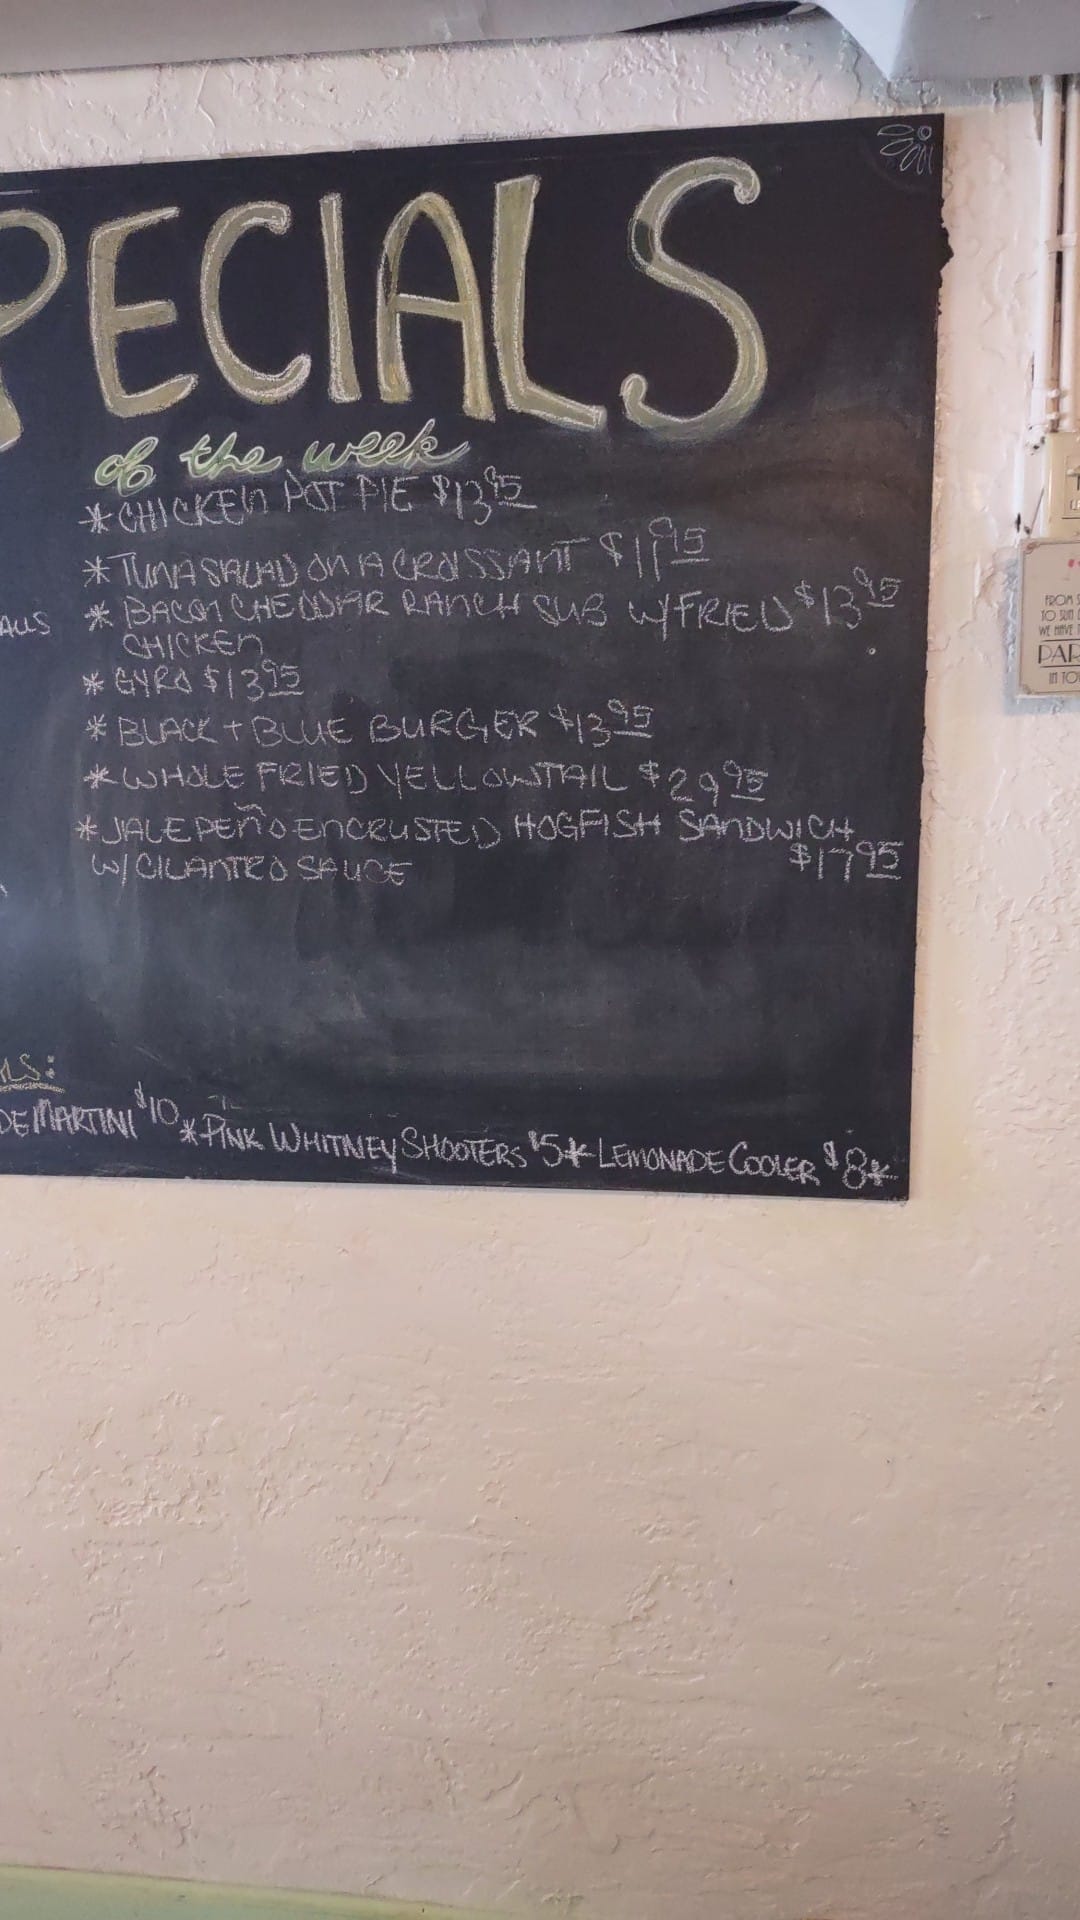 SPECIALS
of the week
* CHICKEN POT PIE $13.95
* TUNA SALAD ON A CROISSANT $11.95
* BACON CHEDDAR RANCH SUB W/ FRIED $13.95
CHICKEN
* GYRO $13.95
* BLACK + BLUE BURGER $13.95
* WHOLE FRIED YELLOWTAIL $29.95
* JALEPEÑO ENCRUSTED HOGFISH SANDWICH
W/ CILANTRO SAUCE $17.95
MARTINI $10 * PINK WHITNEY SHOOTERS $5 * LEMONADE COOLER $8 *
FROM
TO SUN
WE HAVE
IN